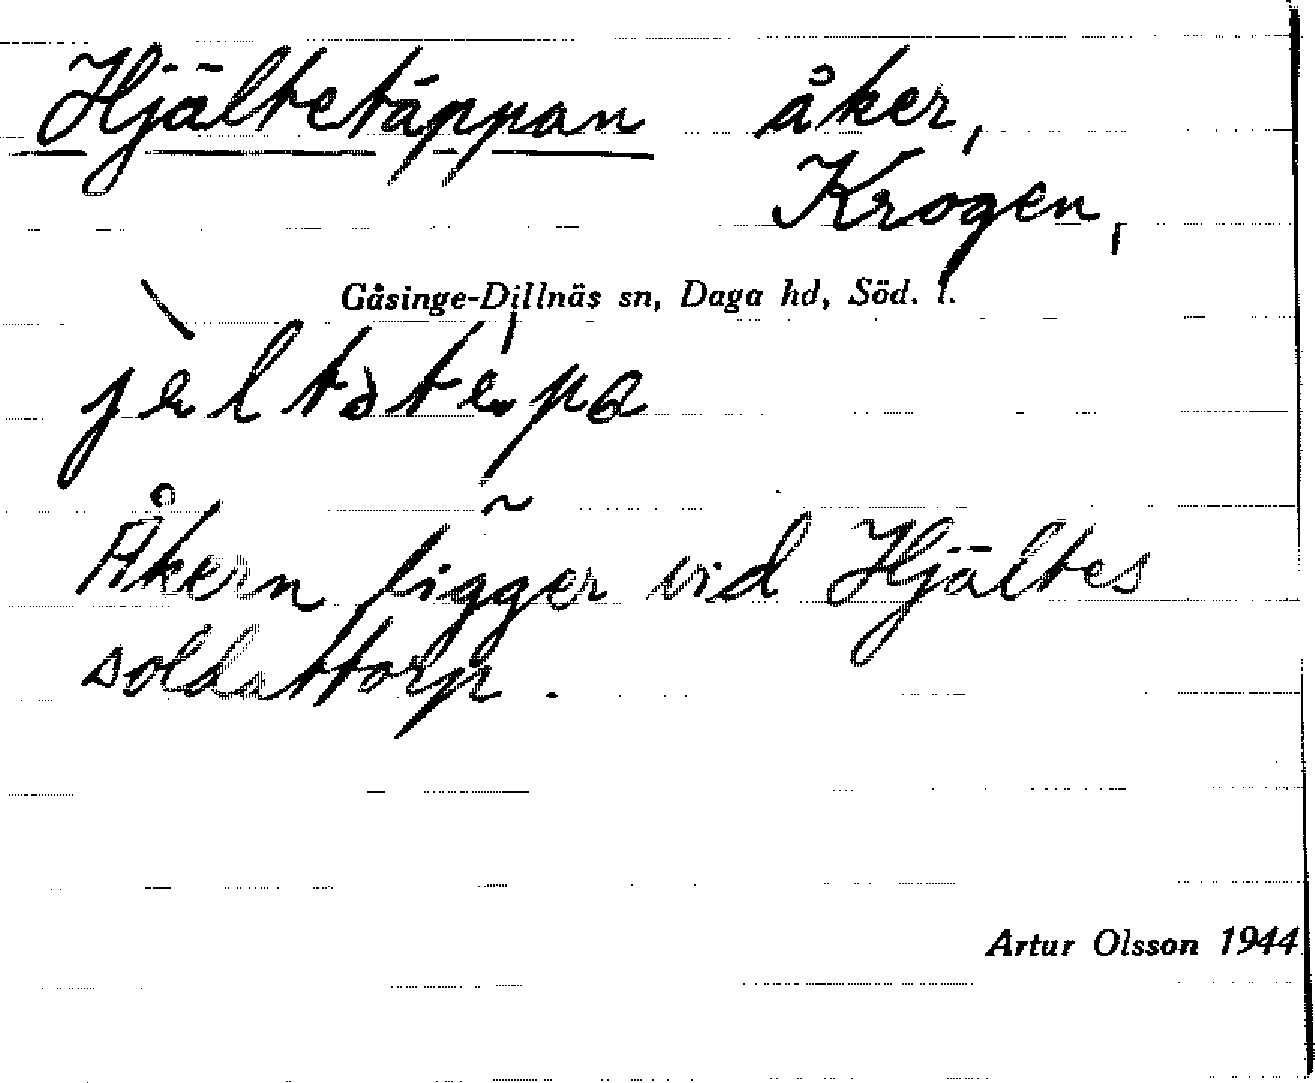 Hjältetäppan åker,
Krogen,
Gåsinge-Dillnäs sn, Daga hd, Söd. l.
Åkern ligger vid Hjältes
soldattorp.
Artur Olsson 1944